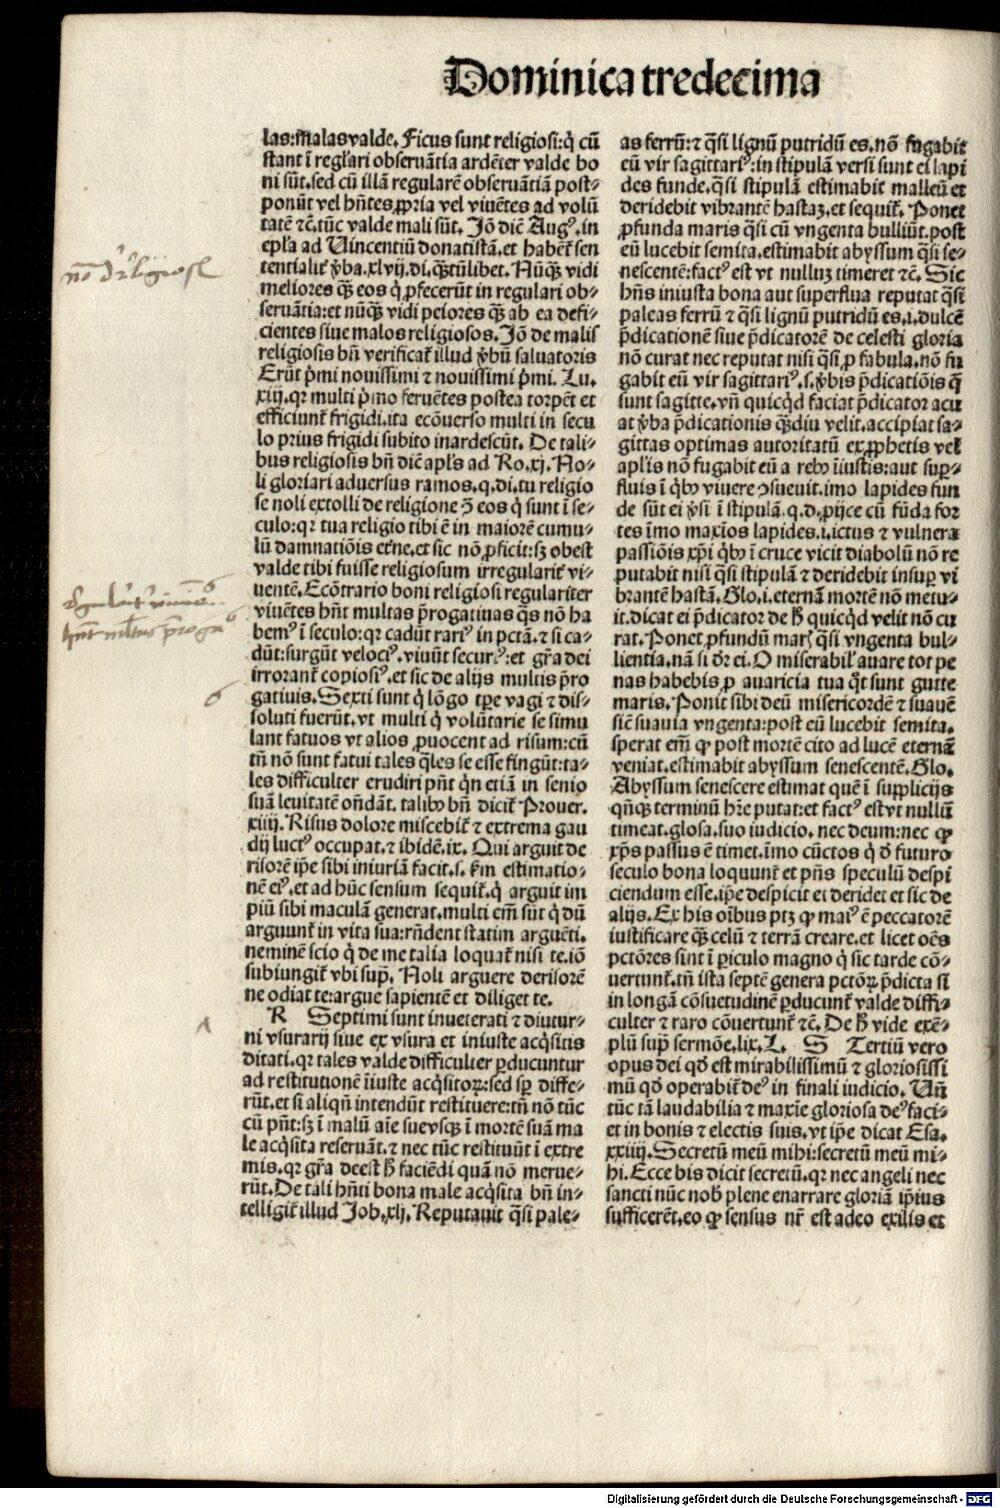 Dominica tredecima
las: malas valde. Ficus sunt religiosi: q̇ cū
stant ī regl'ari obseruātia ardēter valde bo
ni sūt. sed cū illā regularē obseruātiā post⸗
ponūt vel hn̄tes ꝓpria vel viuētes ad volū
tatē ⁊c̄. tūc valde mali sūt. Jō dic̄ Augꝰ. in
epl'a ad Uincentiū donatistā. et habet᷑ sen
tentialit᷑ v̇ba. xlvij. di. qȝtūlibet. Nūqȝ vidi
meliores qȝ eos q̇ ꝓfecerūt in regulari ob⸗
seruātia: et nūqȝ vidi peiores qȝ ab ea defi⸗
cientes siue malos religiosos. Jō de malis
religiosis bn̄ verificat᷑ illud v̇bū saluatoris
Erūt p̄mi nouissimi ⁊ nouissimi p̄mi. Lu.
xiij. qꝛ multi p̄mo feruētes postea torpēt et
efficiunt᷑ frigidi. ita ecōuerso multi in secu
lo prius frigidi subito inardescūt. De tali⸗
bus religiosis bn̄ dic̄ apl's ad Ro. xj. No⸗
li gloriari aduersus ramos. q. di. tu religio
se noli extolli de religione ꝯ̄ eos q̇ sunt ī se⸗
culo: qꝛ tua religio tibi ē in maiorē cumu⸗
lū damnatiōis et̄ne. et sic nō ꝓficit: sȝ obest
valde tibi fuisse religiosum irregularit᷑ vi⸗
uentē. Ecōtrario boni religiosi regulariter
viuētes hn̄t multas p̄rogatiuas qs̄ nō ha
bemꝰ ī seculo: qꝛ cadūt rariꝰ in pctā. ⁊ si ca⸗
dūt: surgūt velociꝰ. viuūt securiꝰ: et gr̄a dei
irrorant᷑ copiosiꝰ. et sic de alijs multis p̄ro
gatiuis. Sexti sunt q̇ lōgo tp̄e vagi ⁊ dis⸗
soluti fuerūt. vt multi q̇ volūtarie se simu
lant fatuos vt alios ꝓuocent ad risum: cū
tn̄ nō sunt fatui tales q̄les se esse fingūt: ta⸗
les difficulter erudiri pn̄t q̇n etiā in senio
suā leuitatē on̄dāt. talibꝰ bn̄ dicit᷑ Prouer.
xiiij. Risus dolore miscebit᷑ ⁊ extrema gau
dij luctꝰ occupat. ⁊ ibidē. ix. Qui arguit de
risorē ip̄e sibi iniuriā facit. s. sc̄dm estimatio⸗
nē eiꝰ. et ad hūc sensum sequit᷑. q̇ arguit im
piū sibi maculā generat. multi em̄ sūt q̇ dū
arguunt᷑ in vita sua: rn̄dent statim arguēti.
neminē scio q̇ de me talia loquat᷑ nisi te. iō
subiungit᷑ vbi sup̄. Noli arguere derisorē
ne odiat te: argue sapientē et diliget te.
R Septimi sunt inueterati ⁊ diutur⸗
ni vsurarij siue ex vsura et iniuste acq̇sitis
ditati. qꝛ tales valde difficulter ꝑducuntur
ad restitutionē iiuste acq̇sitoꝝ: sed sꝑ diffe⸗
rūt. et si aliqn̄ intendūt restituere: tn̄ nō tūc
cū pn̄t: sȝ ī malū aīe sue vsqȝ ī mortē suā ma
le acq̇sita reseruāt. ⁊ nec tūc restituūt ī extre
mis. qꝛ gr̄a deest h̄ faciēdi quā nō merue⸗
rūt. De tali hn̄ti bona male acq̇sita bn̄ in⸗
telligit᷑ illud Job. xlj. Reputauit q̄si pale⸗
as ferrū: ⁊ q̄si lignū putridū es. nō fugabit
eū vir sagittariꝰ: in stipulā versi sunt ei lapi
des funde. q̄si stipulā estimabit malleū et
deridebit vibrantē hastaȝ. et sequit᷑. Ponet
ꝓfunda maris q̄si cū vngenta bulliūt. post
eū lucebit semita. estimabit abyssum q̄si se⸗
nescentē: factꝰ est vt nulluȝ timeret ⁊c̄. Sic
hn̄s iniusta bona aut superflua reputat q̄si
paleas ferrū ⁊ q̄si lignū putridū es. i. dulcē
p̄dicationē siue p̄dicatorē de celesti gloria
nō curat nec reputat nisi q̄si ꝓ fabula. nō fu
gabit eū vir sagittariꝰ. s. v̇bis p̄dicatiōis q̄
sunt sagitte. vn̄ quicq̇d faciat p̄dicator acu
at v̇ba p̄dicationis qȝdiu velit. accipiat sa⸗
gittas optimas autoritatū ex ꝓphetis vel
apl'is nō fugabit eū a rebꝰ iiustis: aut suꝑ⸗
fluis ī q̇bꝰ viuere ↄsueuit. imo lapides fun
de sūt ei v̇si ī stipulā. q. d. ꝓijce cū fūda for
tes īmo maxīos lapides. i. ictus ⁊ vulnera
passiōis xp̄i q̇bꝰ ī cruce vicit diabolū nō re
putabit nisi q̄si stipulā ⁊ deridebit insuꝑ vi
brantē hastā. Glo. i. eternā mortē nō metu⸗
it. dicat ei p̄dicator de h̄ quicq̇d velit nō cu
rat. Ponet ꝓfundū mar̄ q̄si vngenta bul⸗
lientia. nā si dr̄ ei. O miserabil' auare tot pe
nas habebis ꝓ auaricia tua q̇t sunt gutte
maris. Ponit sibi deū misericordē ⁊ suauē
sic̄ suauia vngenta: post eū lucebit semita.
sperat em̄ ꝙ post mortē cito ad lucē eternā
veniat. estimabit abyssum senescentē. Glo.
Abyssum senescere estimat quē ī supplicijs
qn̄qȝ terminū hr̄e putat: et factꝰ est vt nullū
timeat. glosa. suo iudicio. nec deum: nec ꝙ
xp̄s passus ē timet. īmo cūctos q̇ d̄ futuro
seculo bona loquunt᷑ et pn̄s speculū despi
ciendum esse. ip̄e despicit et deridet et sic de
alijs. Ex his oībus ptȝ ꝙ maiꝰ ē peccatorē
iustificare qȝ celū ⁊ terrā creare. et licet oēs
pctōres sint ī ꝑiculo magno q̇ sic tarde cō⸗
uertunt᷑. tn̄ ista septē genera pctōꝝ p̄dicta si
in longā cōsuetudinē ꝑducunt᷑ valde diffi⸗
culter ⁊ raro cōuertunt᷑ ⁊c̄. De h̄ vide exē⸗
plū sup̄ sermōe. lix. L. S Tertiū vero
opus dei qd̄ est mirabilissimū ⁊ gloriosissi
mū qd̄ operabit᷑ deꝰ in finali iudicio. Un̄
tūc tā laudabilia ⁊ maxīe gloriosa deꝰ faci⸗
et in bonis ⁊ electis suis. vt ip̄e dicat Esa.
xxiiij. Secretū meū mihi: secretū meū mi⸗
hi. Ecce bis dicit secretū. qꝛ nec angeli nec
sancti nūc nob̄ plene enarrare gloriā ip̄ius
sufficerēt. eo ꝙ sensus nr̄ est adeo exilis et
6
Digitalisierung gefördert durch die Deutsche Forschungsgemeinschaft - DFG